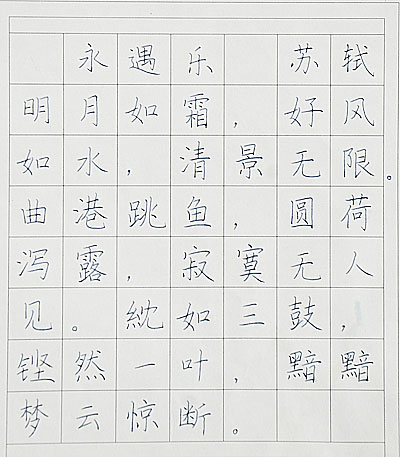 永遇乐 苏轼
明月如霜，好风
如水，清景无限。
曲港跳鱼，圆荷
泻露，寂寞无人
见。紞如三鼓，
铿然一叶，黯黯
梦云惊断。